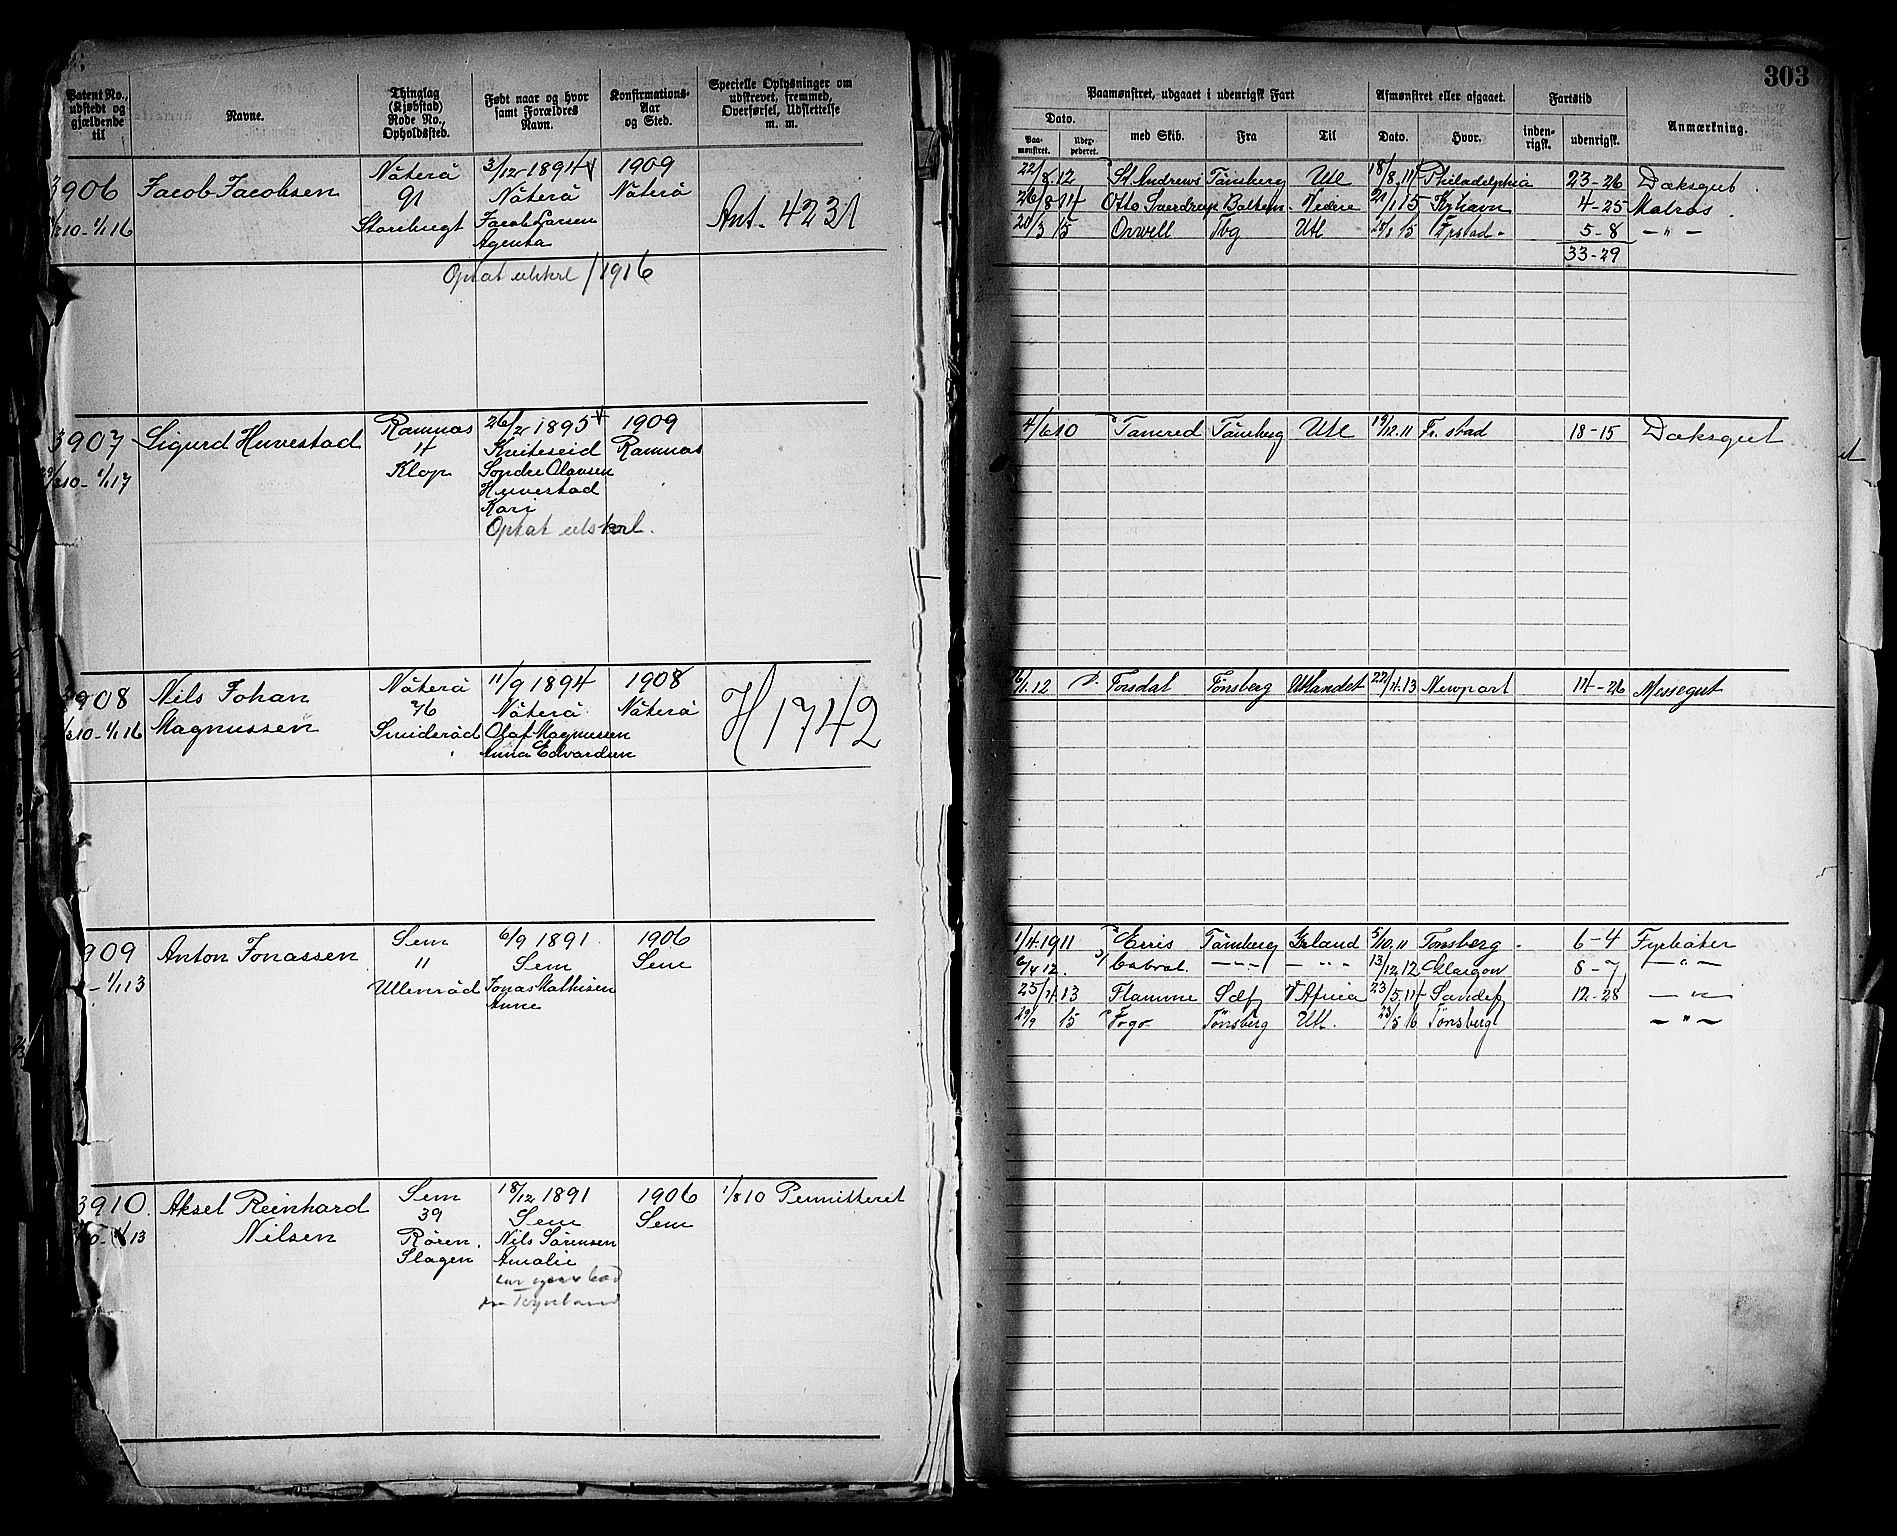 Patent No., udstedt og gjældende til
Navne.
Thinglag (Kjøbstad) Rode No., Opholdssted.
Født naar og hvor samt Forældres Navn.
Konfirmations-Aar og Sted.
Specielle Oplysninger om udskrevet, fremmed, Overførsel, Udslettelse m. m.
3906
10 - 1/1 16
Jacob Jacobsen
Nøterø
91
3/12 1894
Nøterø
Jacob Larsen
Agenta
1909
Nøterø
Ant. 4231
Optat utskrl / 1916
3907
10 - 1/1 17
Sigurd Huvestad
Ramnæs
4
Klop
26/2 1895
Kviteseid
Sondre Olavsen
Huvestad
Kari
1909
Ramnæs
Optat utskrl.
3908
10 - 1/1 16
Nils Johan
Magnussen
Nøterø
76
Smiderød
11/9 1894
Nøterø
Olaf Magnussen
Anna Edvardsen
1908
Nøterø
H 1742
909
- 1/1 13
Anton Jonassen
Sem
11
Ullenrød
6/9 1891
Sem
Jonas Mathisen
Anne
1906
Sem
3910.
13
Aksel Reinhard
Nilsen
Sem
39
Røren.
Slagen
18/12 1891
Sem
Nils Sørensen
Amalie
1906
Sem
1/8 10 Permitteret
303
Paamønstret, udgaaet i udenrigsk Fart
Afmønstret eller afgaaet.
Fartstid
Anmærkning.
Dato.
Paamønstret.
med Skib.
Fra
Til
Dato.
Hvor.
indenrigsk.
udenrigsk.
22/8 12 St. Andrews Tønsberg Utl 18/8 14 Philadelphia 23-26 Dæksgut.
26/8 14 Otto Sverdrup 21/1 15 Kjhavn 4-25 Matros.
20/3 15 Orwell Tbg Utl 15 Frstad 5-8 - " -
33-29
4/6 10 Tancred Tønsberg Utl 19/12 11 Fr. stad 18-15 Dæksgut
1.12 Torsdal Tønsberg Utlandet 22/4.13 Newport 14-26 Messegut
1/4.1911 Erris Tønsberg Grland 5/10.11 Tønsberg 6-4 Fyrbøter
6/4 12. Cabral. - " - - " - 13/12 12 Glasgow 8-7 - " -
25/4 13 Flamme Sdfj V Africa 23/5.14 Sandefj 12-28 - " -
29/9 15 Fogo Tønsberg Utl. 23/5 16 Tønsberg - " -